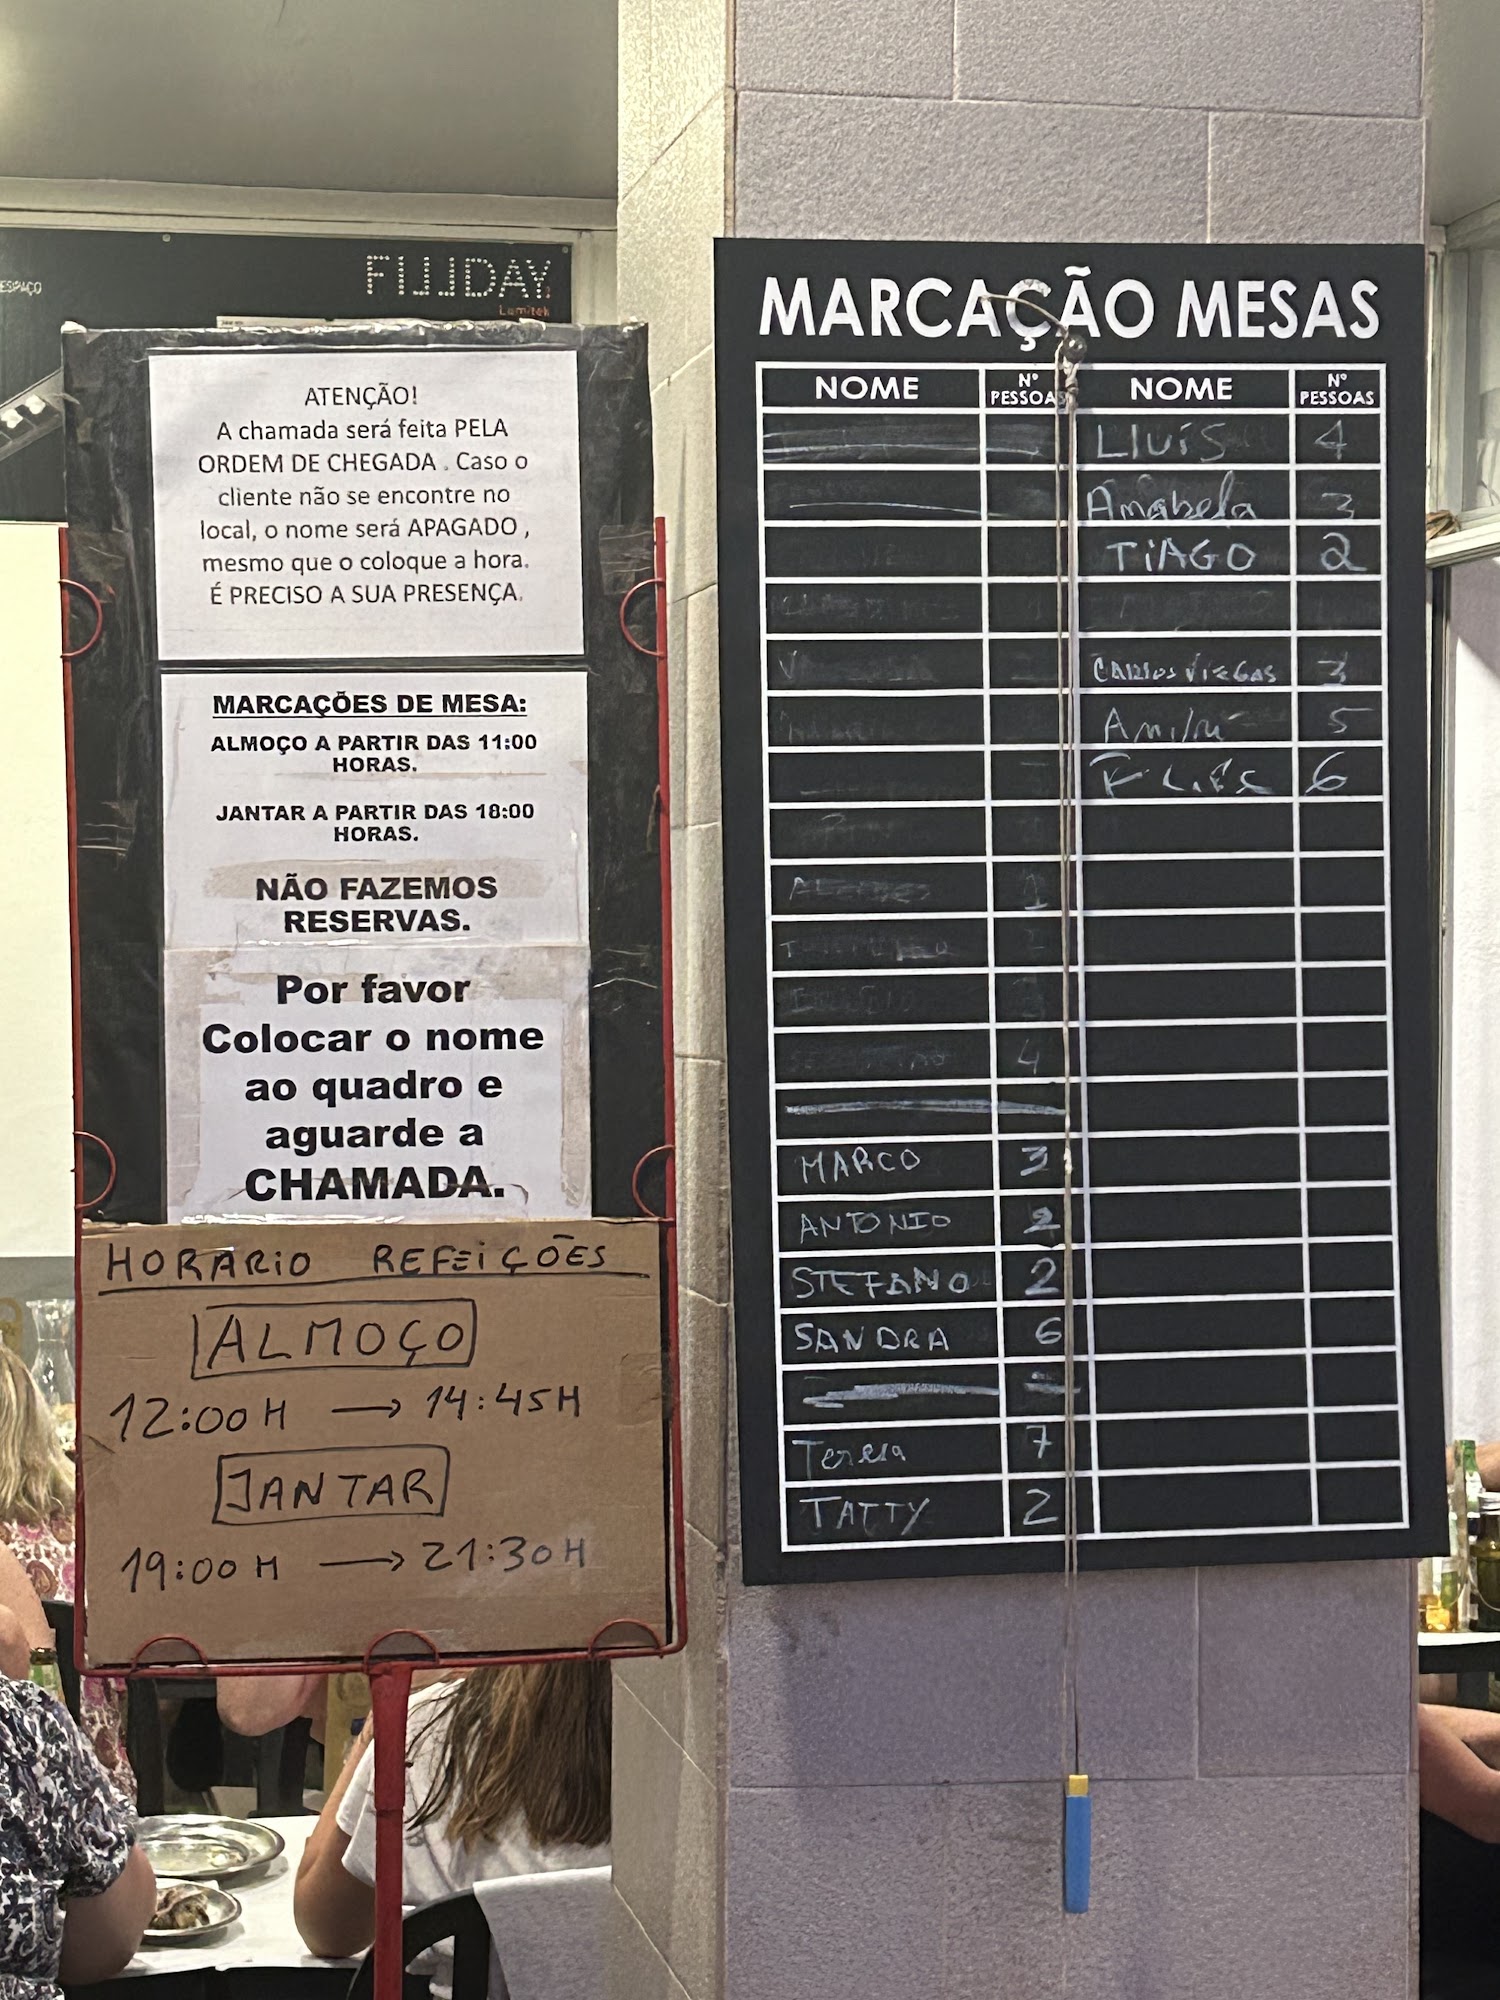 ESPAÇO
FILLDAY
Lumitek
ATENÇÃO!
A chamada será feita PELA
ORDEM DE CHEGADA . Caso o
cliente não se encontre no
local, o nome será APAGADO ,
mesmo que o coloque a hora.
É PRECISO A SUA PRESENÇA.
MARCAÇÕES DE MESA:
ALMOÇO A PARTIR DAS 11:00
HORAS.
JANTAR A PARTIR DAS 18:00
HORAS.
NÃO FAZEMOS
RESERVAS.
Por favor
Colocar o nome
ao quadro e
aguarde a
CHAMADA.
HORARIO REFEIÇÕES
ALMOÇO
12:00H → 14:45H
JANTAR
19:00H → 21:30H
MARCAÇÃO MESAS
NOME Nº PESSOAS NOME Nº PESSOAS
LLUÍS 4
Amabela 3
TiAGO 2
CARLOS VIEGAS 3
5
6
1
4
MARCO 3
ANTONIO 2
STEFANO 2
SANDRA 6
Teresa 7
TATTY 2